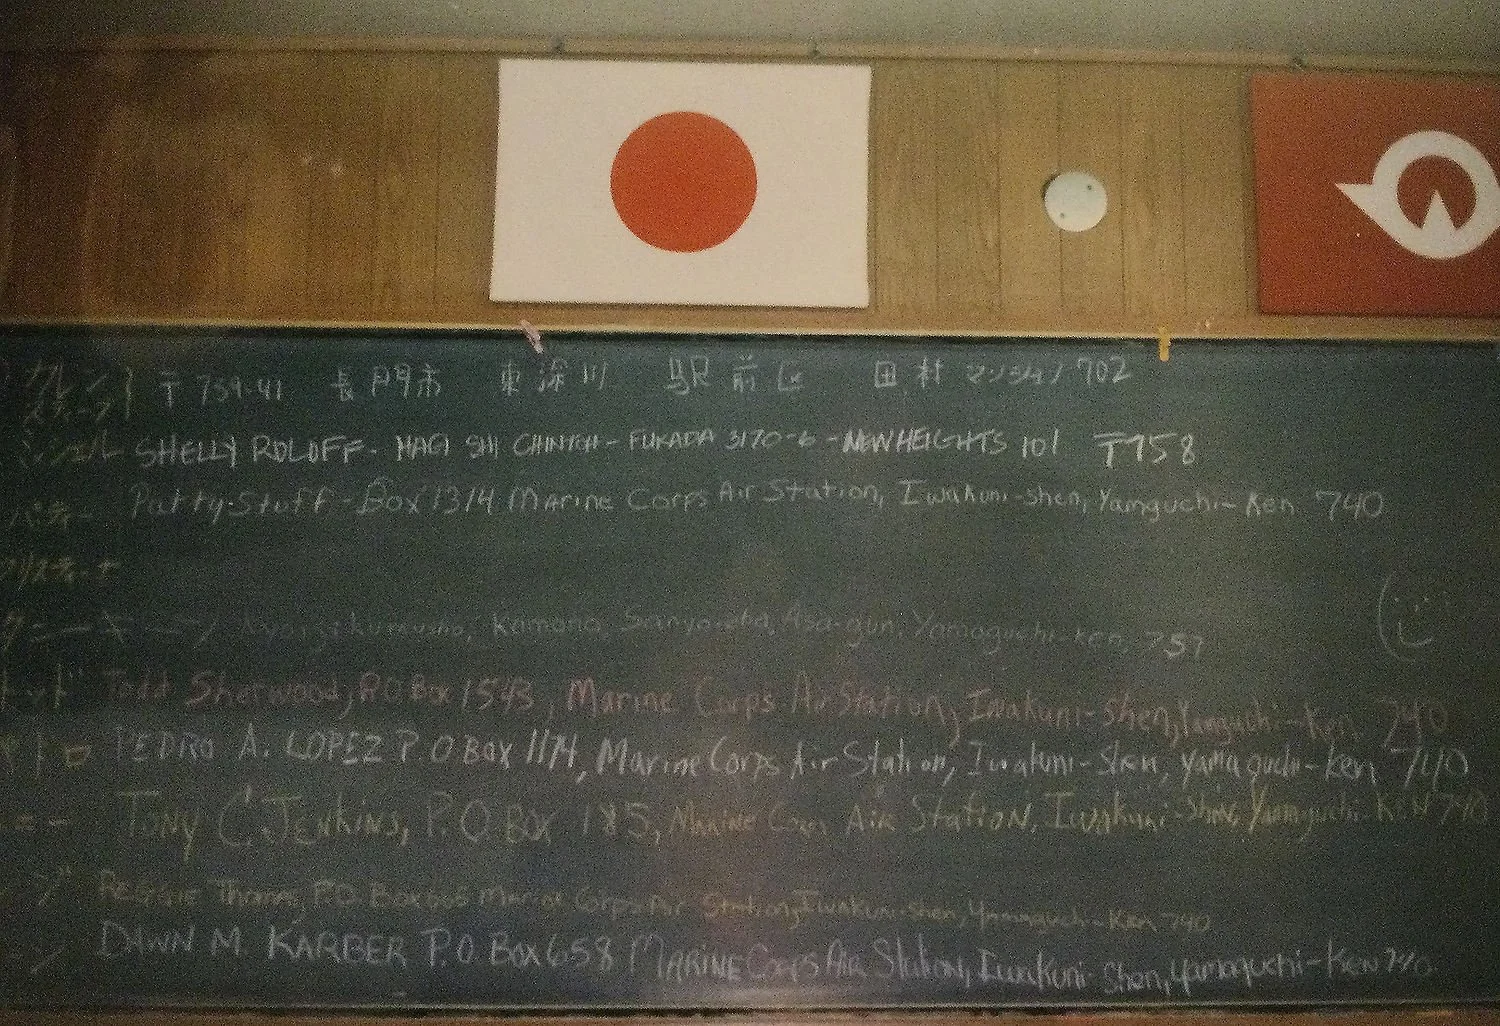 〒759-41 長門市 東深川 駅前区 田村マンション702
SHELLY ROLOFF - HAGI SHI CHINTOH - FUKADA 3170-6 - NEW HEIGHTS 101 〒758
パティー Patty Stuff - Box 1314 Marine Corps Air Station, Iwakuni-shen, Yamguchi-Ken 740
クリスティーナ
Kamono, Sanyo-cho, Asa-gun, Yamaguchi-Ken, 757
トッド Todd Sherwood, P.O Box 1543, Marine Corps Air Station, Iwakuni-Shen, Yamguchi-Ken 740
ペドロ PEDRO A. LOPEZ P.O BOX 1174, Marine Corps Air Station, Iwakuni-Shen, Yamaguchi-Ken 740
TONY C. JENKINS, P.O BOX 185, Marine Corps Air Station, Iwakuni-Shen, Yamguchi-KEN 740
REGGIE Thomas, P.O. Box 606 Marine Corps Air Station, Iwakuni-Shen, Yamaguchi-Ken 740
DAWN M. KARBER P.O. Box 658 MARINE Corps AIR Station, Iwakuni-Shen, Yamaguchi-KEN 740